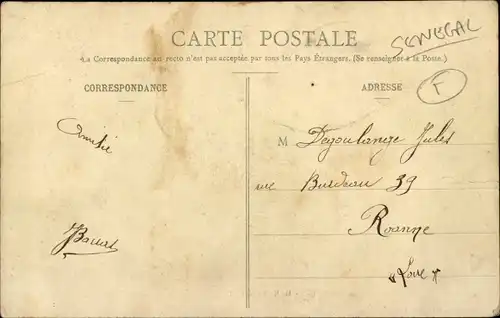 CARTE POSTALE
SENEGAL
La Correspondance au recto n'est pas acceptée par tous les Pays Étrangers. (Se renseigner à la Poste.)
CORRESPONDANCE
ADRESSE
F
Amitié
M Degoulange Jules
rue Burdeau 39
Roanne
Loire